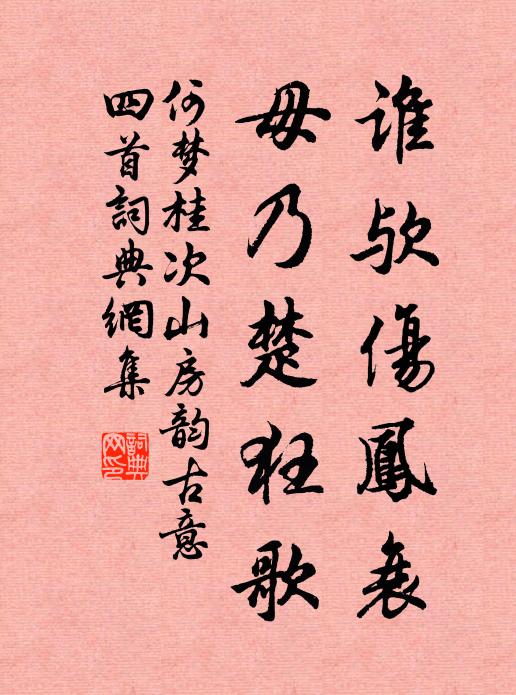 誰欤傷鳳衰
毋乃楚狂歌
何梦桂次山房韵古意
四首詞典網集
詞典网印